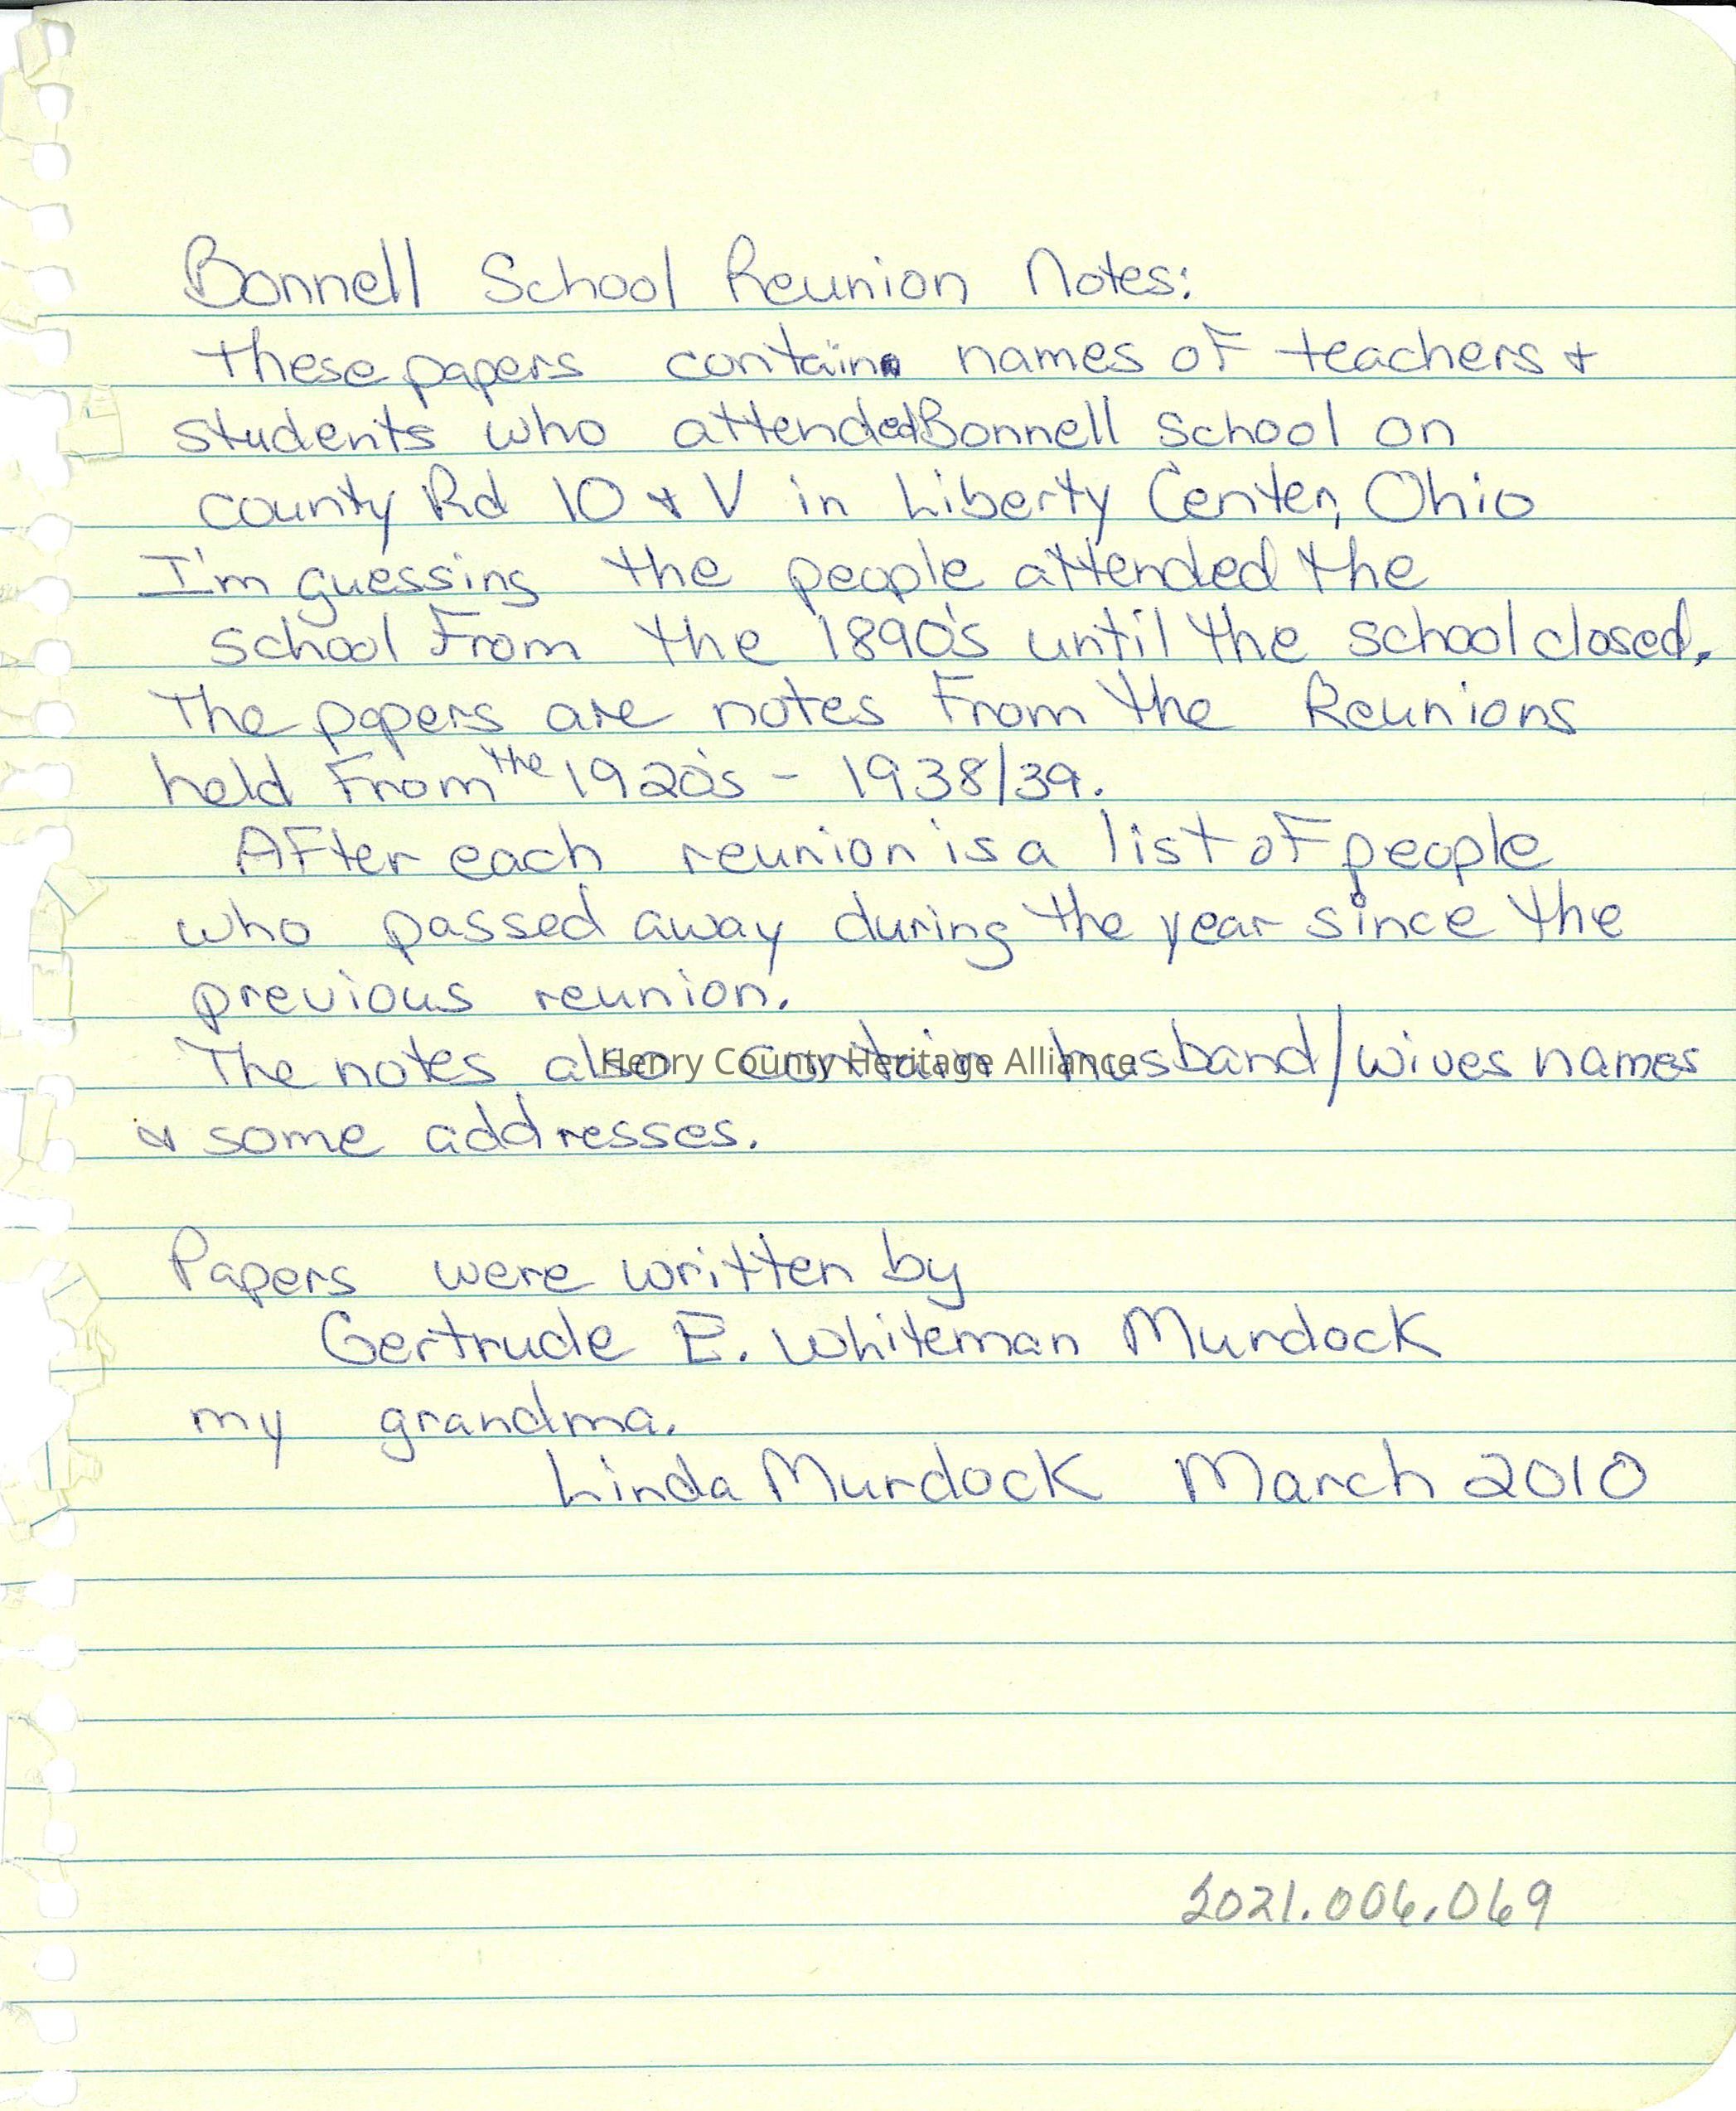 Bonnell School Reunion Notes:
These papers contain names of teachers &
students who attended Bonnell School on
county Rd 10 & V in Liberty Center, Ohio
I'm guessing the people attended the
school from the 1890's until the school closed.
The papers are notes from the Reunions
held from the 1920's - 1938/39.
After each reunion is a list of people
who passed away during the year since the
previous reunion.
The notes also contain husband/wives names
Henry County Heritage Alliance
& some addresses.
Papers were written by
Gertrude E. Whiteman Murdock
my grandma.
Linda Murdock March 2010
2021.006.069